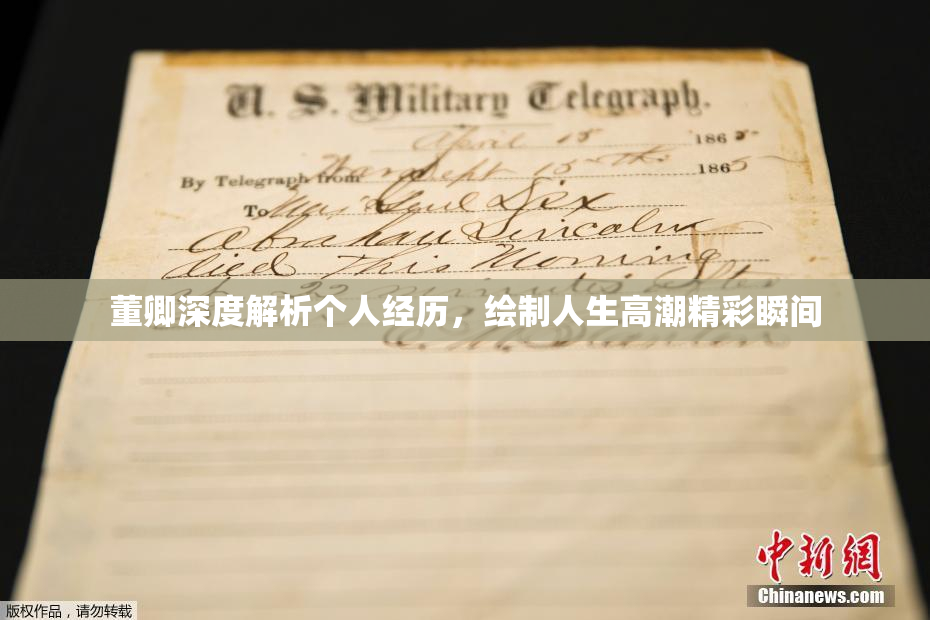 U. S. Military Telegraph.
April 15 1865
By Telegraph from War Dept 15th 1865
To Maj Genl Dix
Abraham Lincoln
died This Morning
22 minutes after
董卿深度解析个人经历，绘制人生高潮精彩瞬间
E. M. Stanton
中新网
Chinanews.com
版权作品，请勿转载